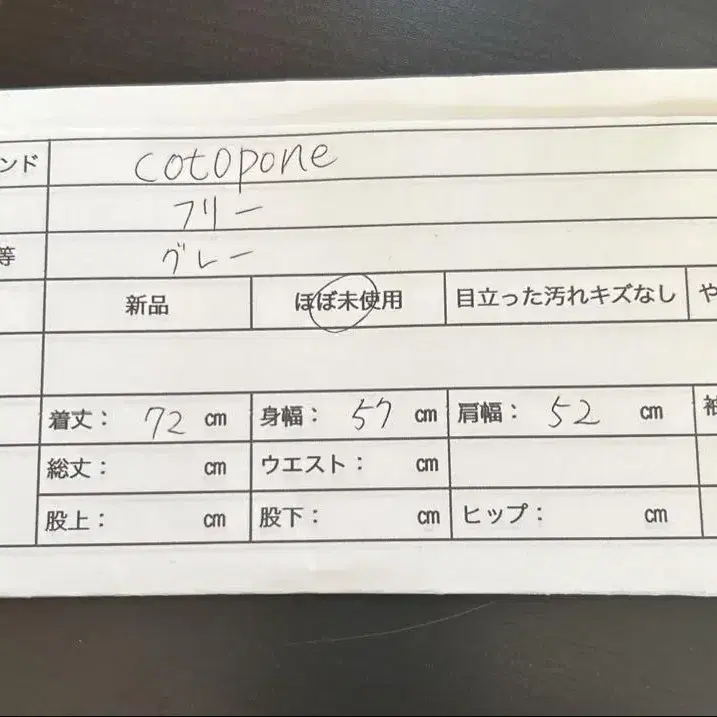 ンド cotopone
フリー
等 グレー
新品 ほぼ未使用 目立った汚れキズなし や
着丈： 72 cm 身幅： 57 cm 肩幅： 52 cm 袖
総丈： cm ウエスト： cm
股上： cm 股下： cm ヒップ： cm